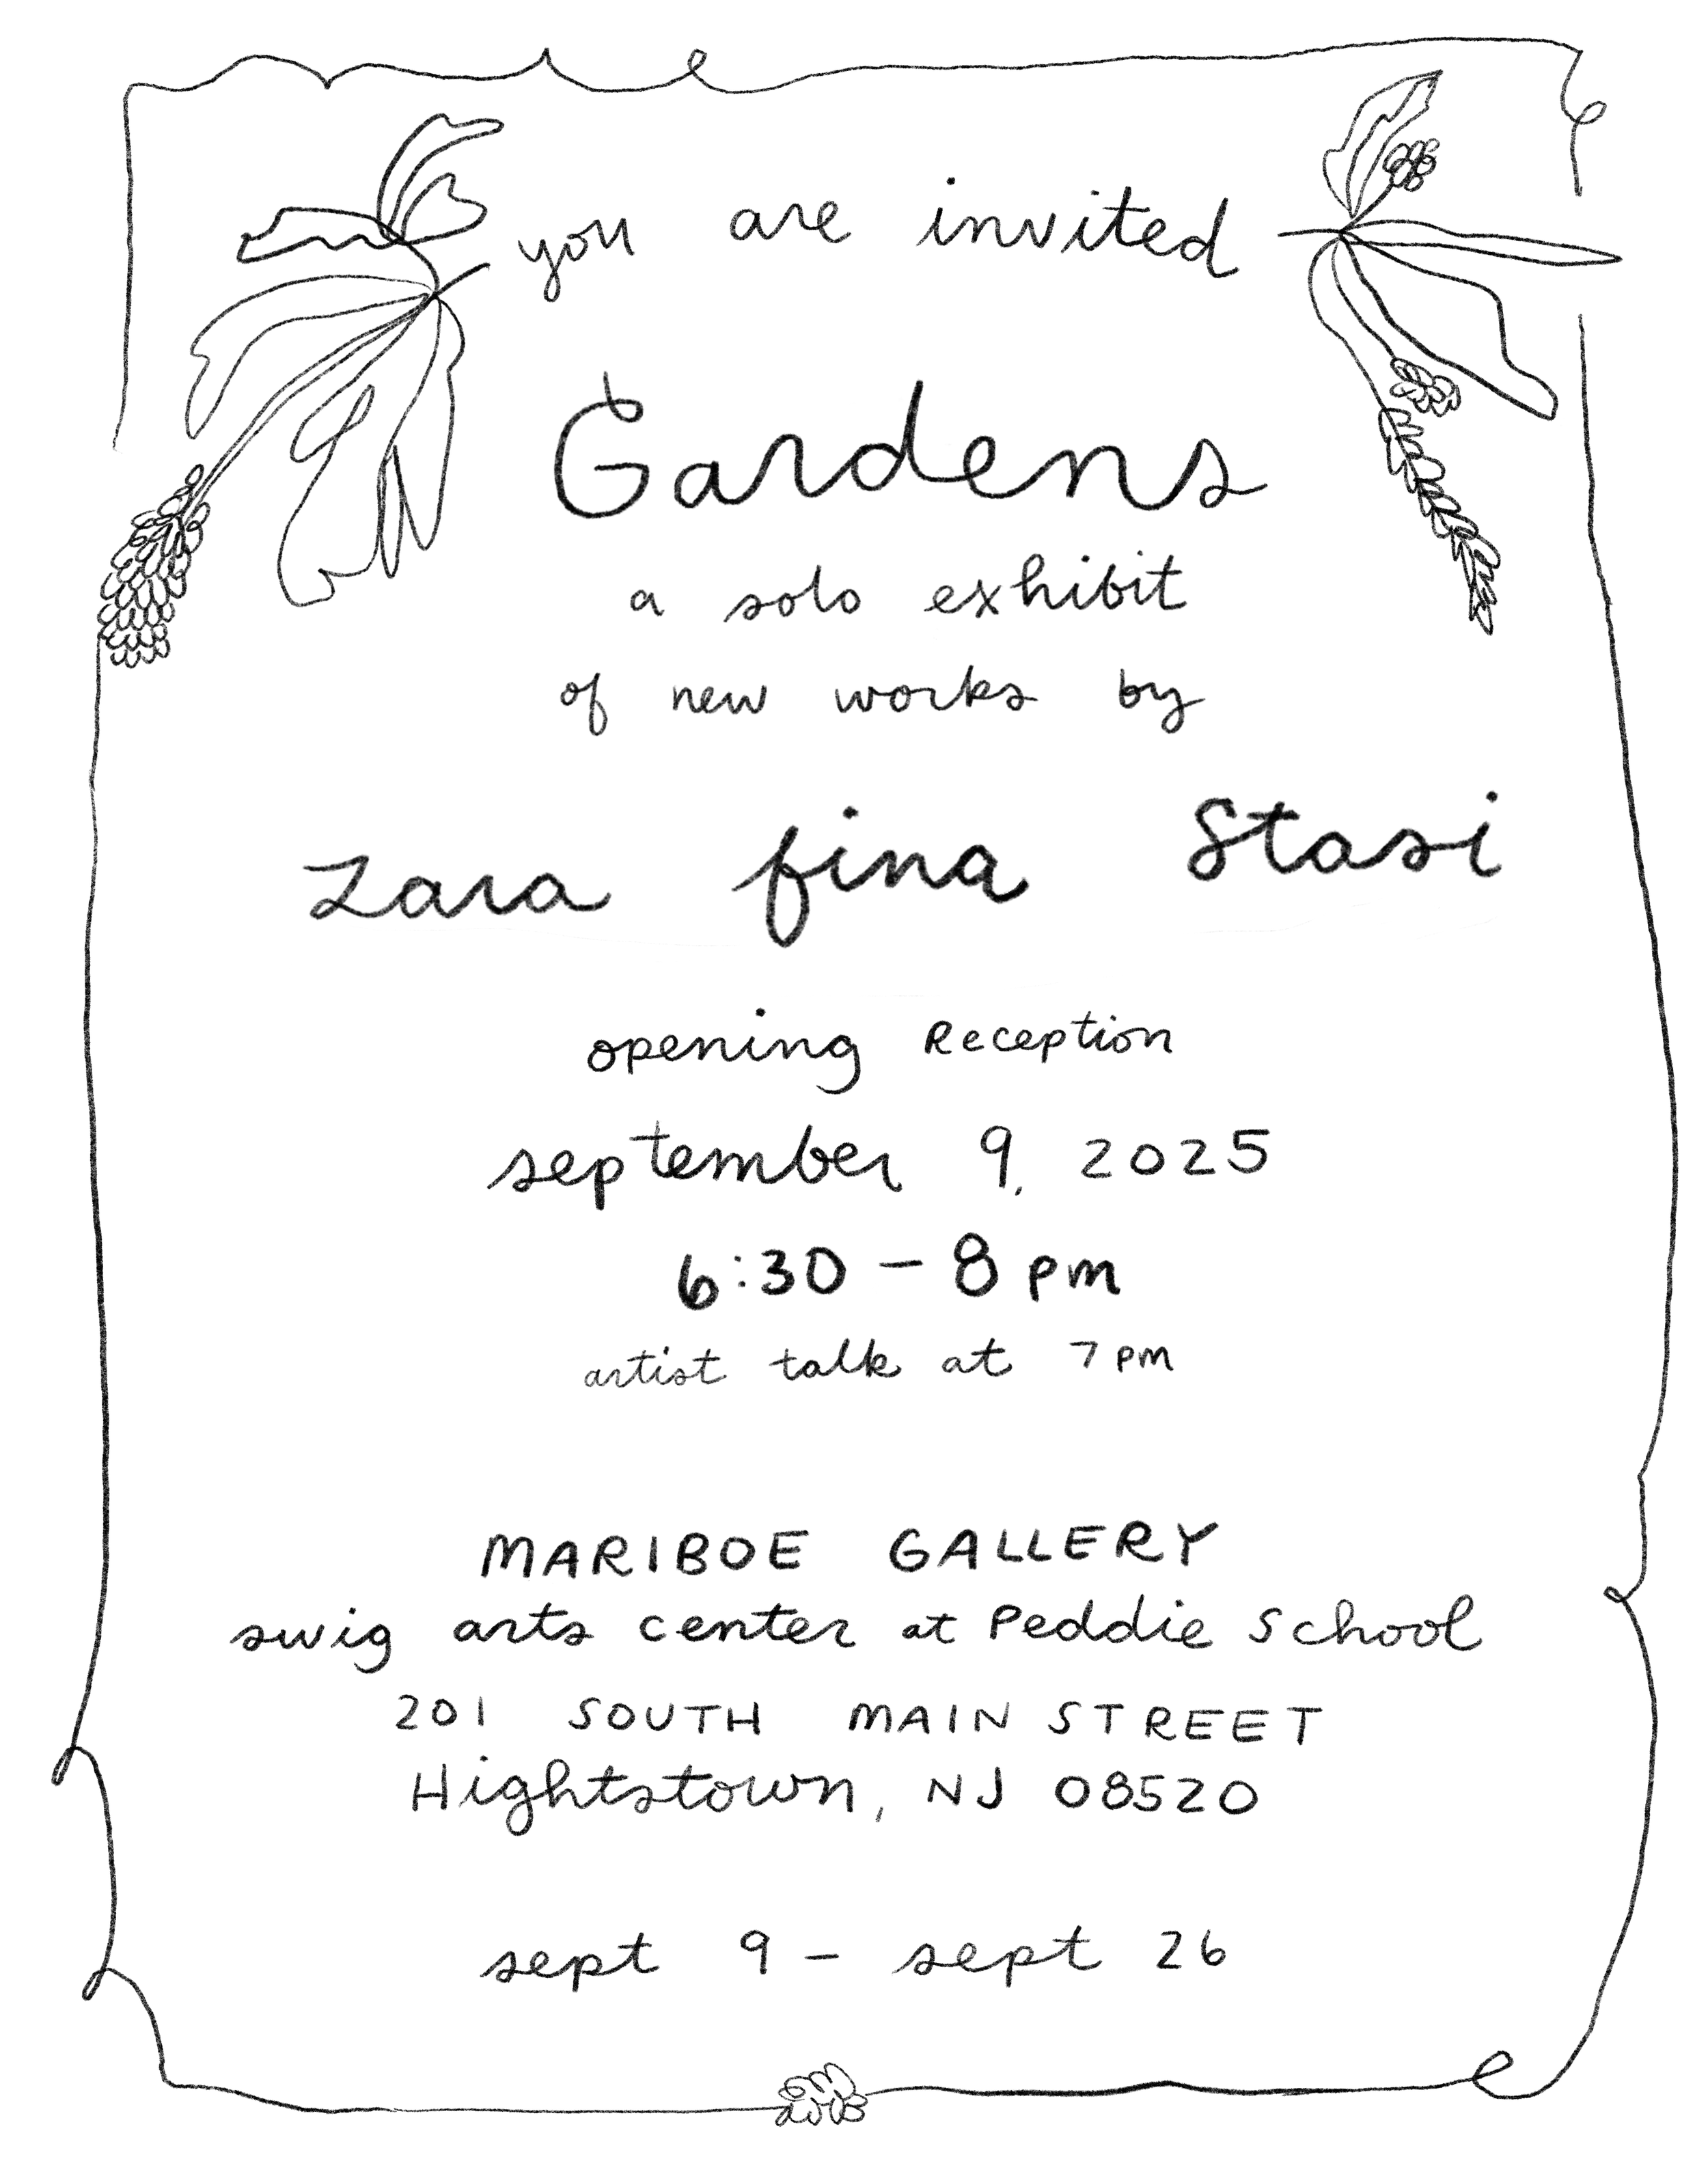 you are invited
Gardens
a solo exhibit
of new works by
Zara fina Stasi
opening Reception
september 9, 2025
6:30 - 8 pm
artist talk at 7 pm
MARIBOE GALLERY
swig arts center at Peddie School
201 SOUTH MAIN STREET
Hightstown, NJ 08520
sept 9 - sept 26